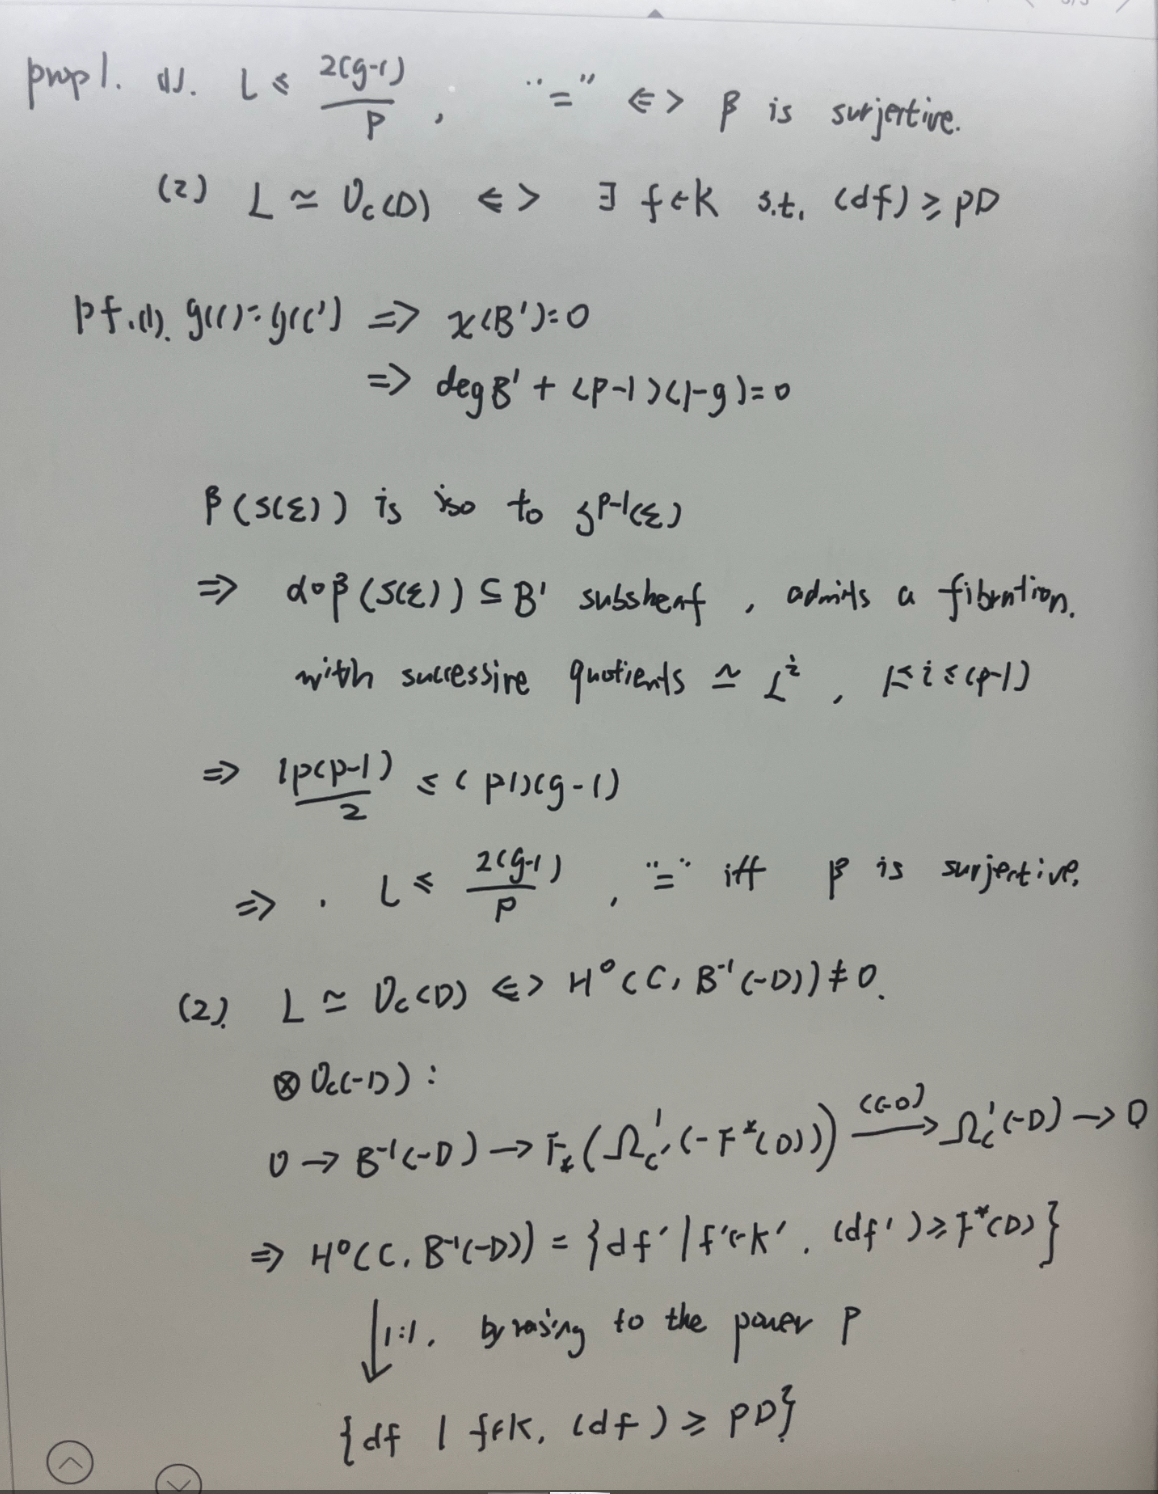 prop 1. (1). L ≤ 2(g-1)/p , "=" <=> β is surjective.
(2) L ≃ O_C(D) <=> ∃ f∈K s.t. (df) ≥ pD
pf.(1). g(C)=g(C') => χ(B')=0
=> deg B' + (p-1)(1-g)=0
β(S(ε)) is iso to S^{p-1}(ε)
=> α∘β(S(ε)) ⊆ B' subsheaf , admits a fibration.
with successive quotients ≃ L^i , 1≤i≤(p-1)
=> lp(p-1)/2 ≤ (p1)(g-1)
=> . L ≤ 2(g-1)/p , "=" iff β is surjective.
(2). L ≃ O_C(D) <=> H^0(C, B^{-1}(-D)) ≠ 0.
⊗ O_C(-D) :
0 → B^{-1}(-D) → F_*(Ω^1_{C'}(-F^*(D))) → Ω^1_C(-D) → 0
=> H^0(C, B^{-1}(-D)) = {df' | f'∈K', (df') ≥ F^*(D)}
↓ 1:1, by rasing to the power p
{df | f∈K, (df) ≥ pD}